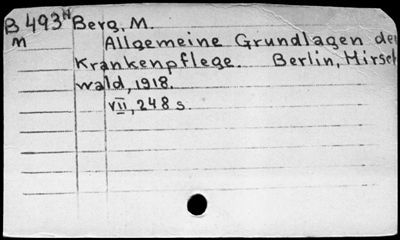 B 493ᴴ Berg, M.
m Allgemeine Grundlagen der
Krankenpflege. Berlin, Hirsch
wald, 1918.
VII, 248 s.